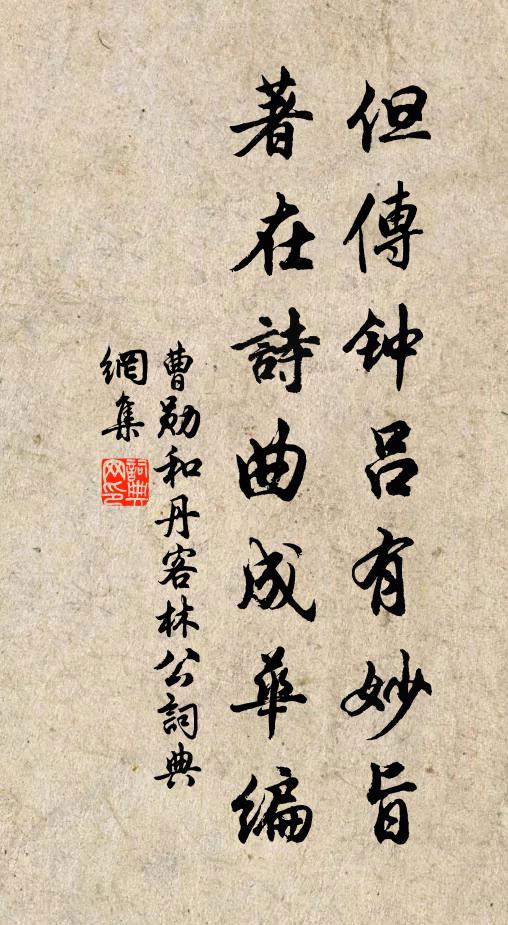 但傳钟吕有妙旨
著在詩曲成華编
曹勛和丹客林公詞典
網集
詞典网印